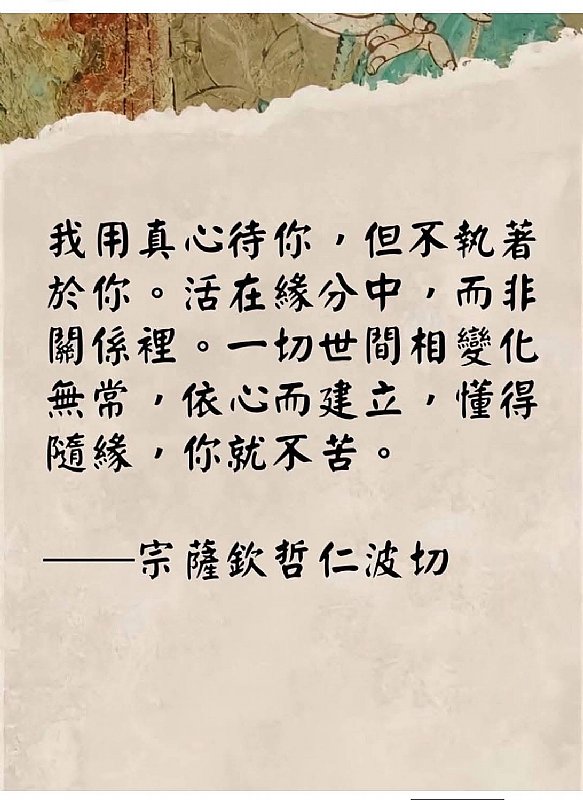 我用真心待你，但不執著
於你。活在緣分中，而非
關係裡。一切世間相變化
無常，依心而建立，懂得
隨緣，你就不苦。
——宗薩欽哲仁波切